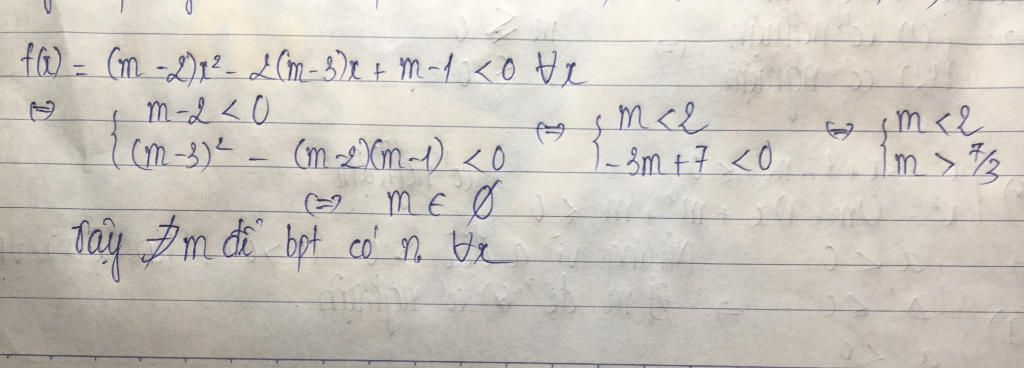 f(x) = (m - 2)x² - 2(m - 3)x + m - 1 < 0 ∀x
⇔ { m - 2 < 0 ⇔ { m < 2 ⇔ { m < 2
(m - 3)² - (m - 2)(m - 1) < 0 - 3m + 7 < 0 m > 7/3
⇔ m ∈ ∅
Vậy ∄ m để bpt có n₀ ∀x